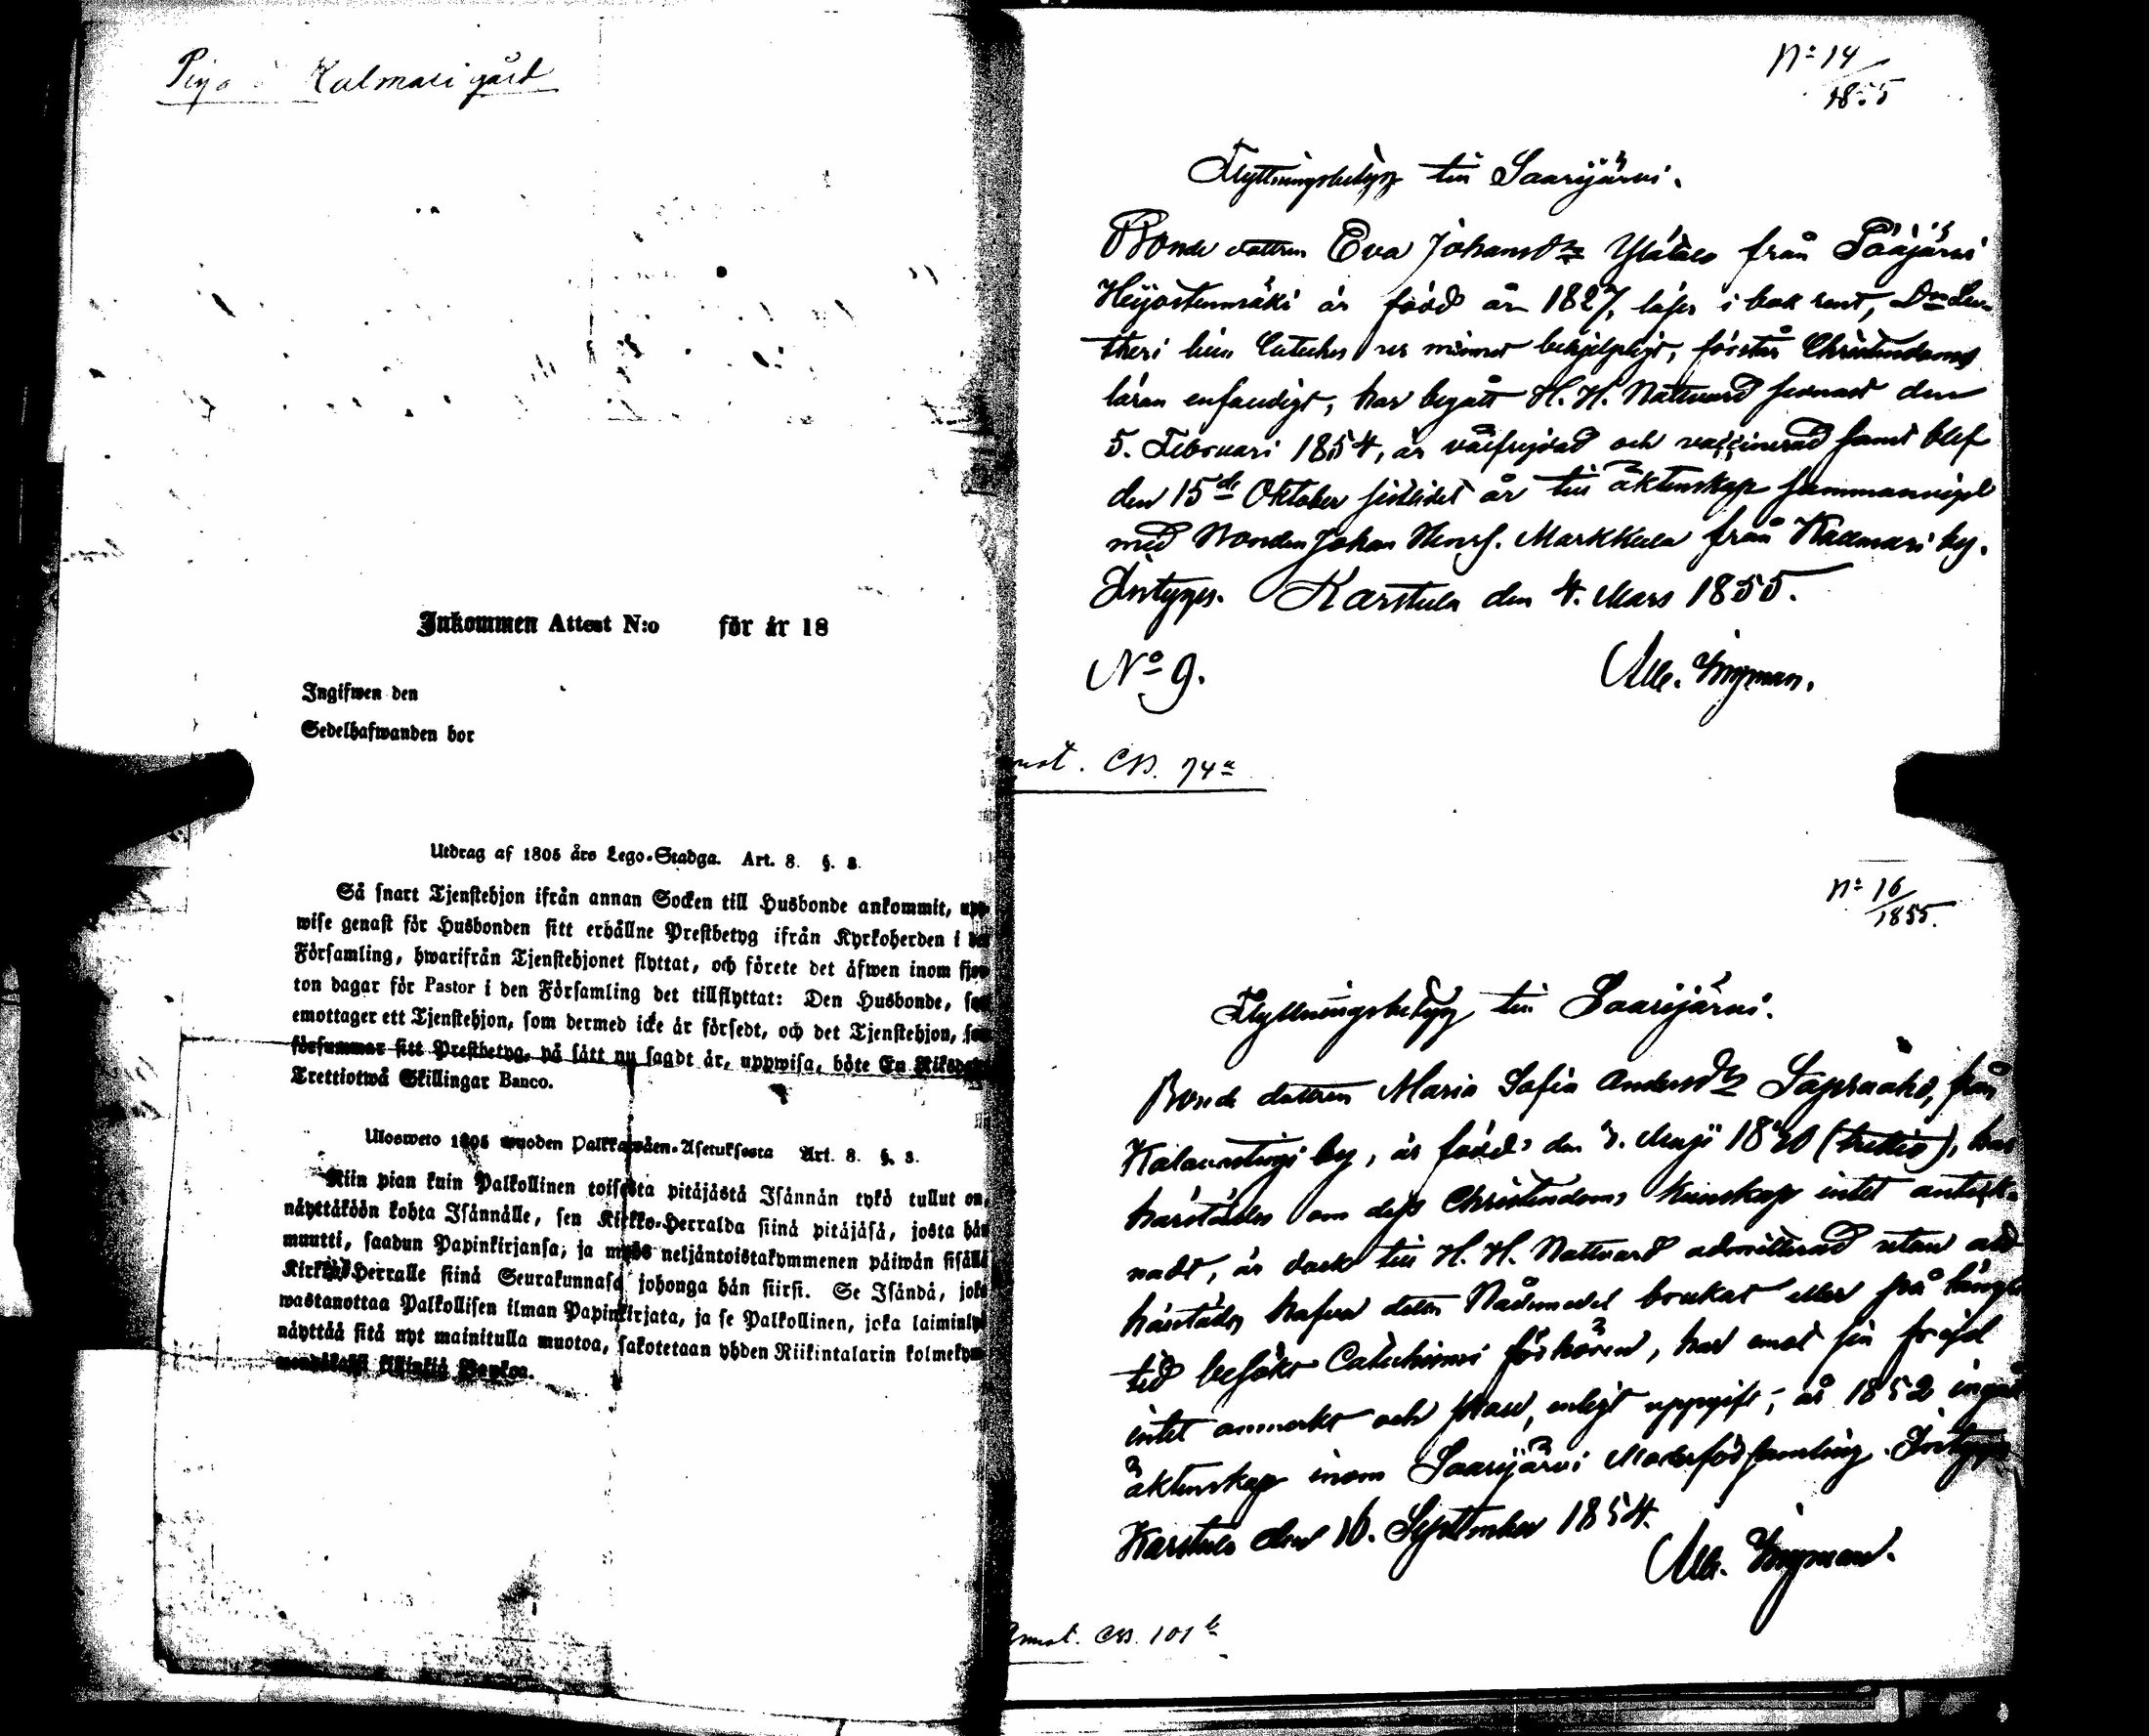 Piga å Kalmari gård
Inkommen Attest N:o för år 18
Ingifwen den
Sedelhafwanden bor
Utdrag af 1805 års Lego-Stadga. Art. 8. §. 3.
Så snart Tjenstehjon ifrån annan Socken till Husbonde ankommit, upp-
wise genast för Husbonden sitt erhållne Prestbetyg ifrån Kyrkoherden i den
Församling, hwarifrån Tjenstehjonet flyttat, och förete det äfwen inom fjor-
ton dagar för Pastor i den Församling det tillflyttat: Den Husbonde, som
emottager ett Tjenstehjon, som dermed icke är försedt, och det Tjenstehjon, som
försummar sitt Prestbetyg, på sätt nu sagdt är, uppwisa, böte En Riksdaler
Trettiotwå Skillingar Banco.
Ulosweto 1805 wuoden Palkkawäen-Asetuksesta Art. 8. §. 3.
Niin pian kuin Palkollinen toisesta pitäjästä Isännän tykö tullut on,
näyttäköön kohta Isännälle, sen Kirkko-Herralda siinä pitäjäsä, josta hän
muutti, saadun Papinkirjansa, ja myös neljäntoistakymmenen päiwän sisällä
Kirkko-Herralle siinä Seurakunnasa johonga hän siirsi. Se Isändä, joka
wastanottaa Palkollisen ilman Papinkirjata, ja se Palkollinen, joka laiminlyö
näyttää sitä nyt mainitulla muotoa, sakotetaan yhden Riikintalarin kolmekym-
mendäkaksi killinkiä Bankoa.
No 14
1855
Flyttningsbetyg till Saarijärvi.
Bonde dottren Eva Johansdtr Ylätalo från Pääjärvi
Heijostenmäki är född år 1827, läser i bok rent, Drs Lu-
theri lilla Cateches ur minnet behjelpligt, förstår Christendoms
läran enfaldigt, har begått H. H. Nattvard senast den
5. Februari 1854, är välfrejdad och vaccinerad samt blef
den 15de Oktober sistlidet år till äktenskap sammanvigd
med Bonden Johan Henrs. Markkula från Kalmari by.
Intyges. Karstula den 4. Mars 1855.
No 9. Alb. Ingman.
Annot. CB. 74a
No 16
1855.
Flyttningsbetyg till Saarijärvi.
Bonde dottren Maria Sofia Andersdtr från
by, är född den 3. Maji (tretio), har
härstädes om dess Christendoms kunskap intet anteck-
nadt, är dock till H. H. Nattvard admitterad utan att
härstädes hafva detta Nådemedel brukat eller på längre
tid besökt Catechismi förhören, har emot sin frejd
intet anmerkt och skall, enligt uppgift, år 1852 ingått
äktenskap inom Saarijärvi Moderförsamling. Intyges
Karstula den 16. September 1854.
Alb. Ingman.
Annot. CB. 101b